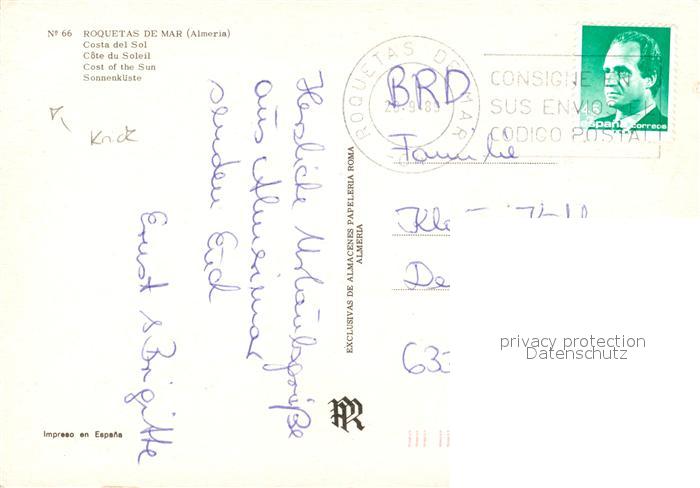 Nº 66 ROQUETAS DE MAR (Almeria)
Costa del Sol
Côte du Soleil
Cost of the Sun
Sonnenküste
Knick
Herzliche Urlaubsgrüße
aus Almerimar
senden Euch
Ernst & Brigitte
EXCLUSIVAS DE ALMACENES PAPELERIA ROMA
ALMERIA
Impreso en España
PR
ROQUETAS DE MAR
CONSIGNE EN
SUS ENVIOS EL
CODIGO POSTAL
España correos
BRD
Familie
privacy protection
Datenschutz